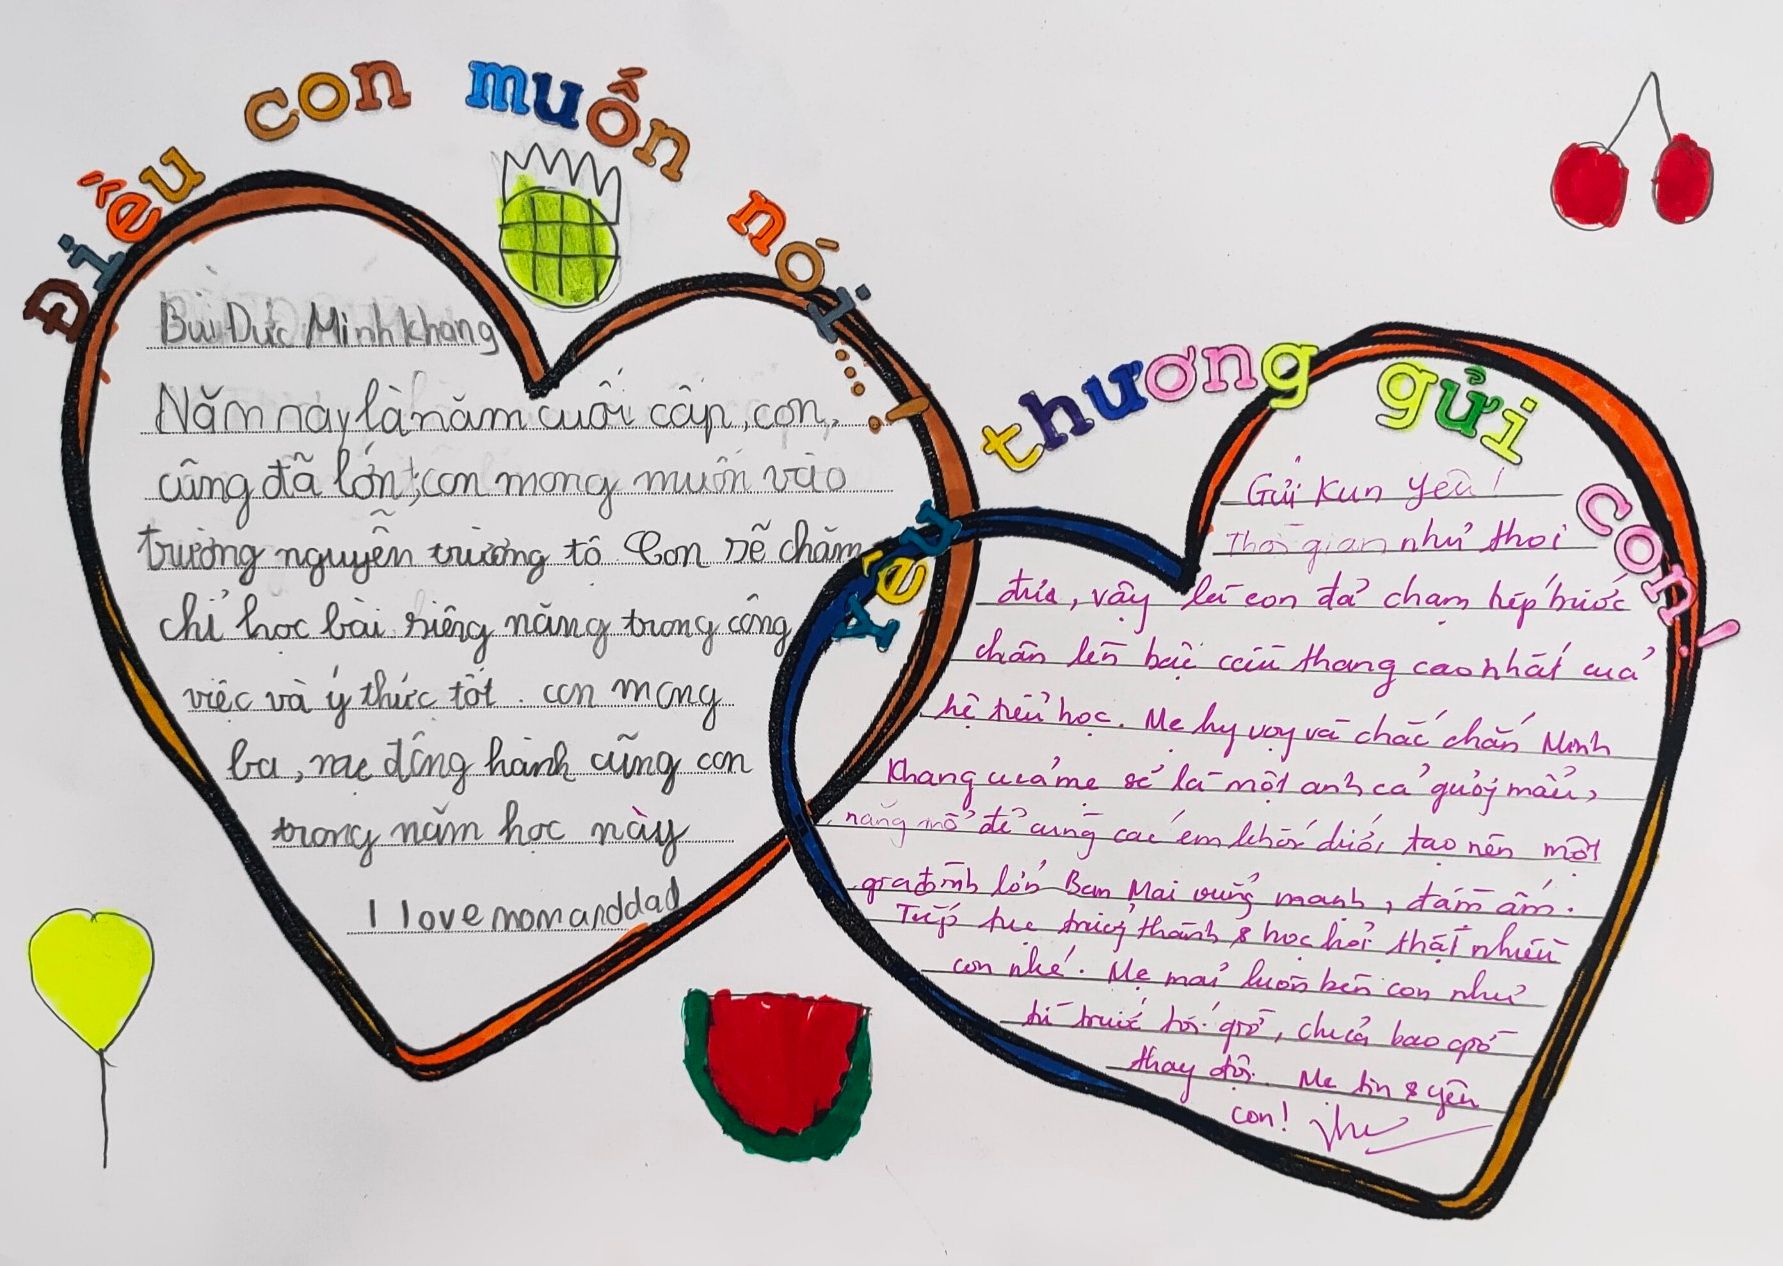 Điều con muốn nói....!
Bùi Đức Minh Khang
Năm nay là năm cuối cấp, con,
cũng đã lớn, con mong muốn vào
trường nguyễn trường tộ Con sẽ chăm
chỉ học bài riêng năng trong công
việc và ý thức tốt. con mong
ba, mẹ đồng hành cũng con
trong năm học này
I love mom and dad
Yêu thương gửi con!
Gửi Kun yêu!
Thời gian như thoi
đưa, vậy là con đã chạm tiếp bước
chân lên bậc cầu thang cao nhất của
hệ tiểu học. Mẹ hy vọng và chắc chắn Minh
Khang của mẹ sẽ là một anh cả gương mẫu,
năng nổ để cùng các em khối dưới tạo nên một
gia đình lớn Ban Mai vững mạnh, đầm ấm.
Tiếp tục trưởng thành & học hỏi thật nhiều
con nhé. Mẹ mãi luôn bên con như
từ trước tới giờ, chưa bao giờ
thay đổi. Mẹ tin & yêu
con!